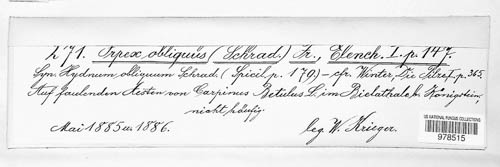 271. Irpex obliquus (Schrad.) Fr., Elench. I. p. 147.
Syn. Hydnum obliquum Schrad. (Spicil. p. 179) - cfr. Winter, Die Pilze p. 365.
Auf faulenden Aesten von Carpinus Betulus L. im Bielathale b. Königstein,
nicht häufig.
Mai 1885 u. 1886. leg. W. Krieger.
US NATIONAL FUNGUS COLLECTIONS
978515